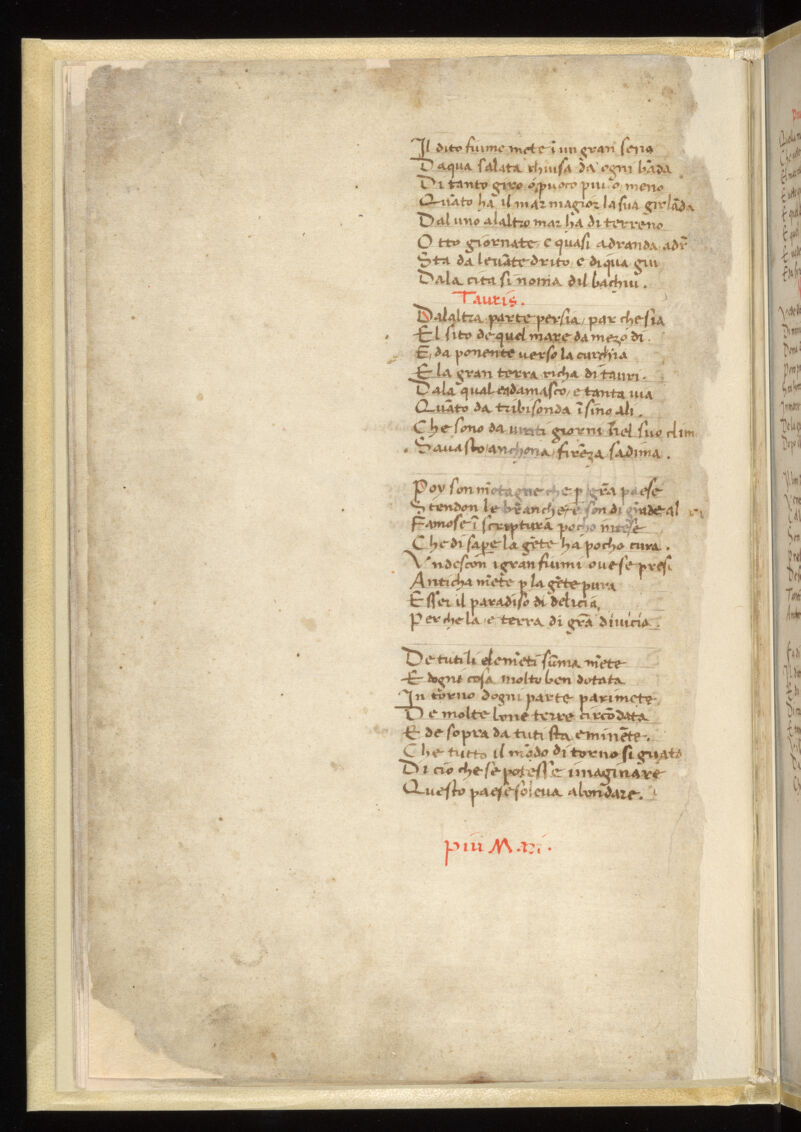 Il dito fiume mete ī un gran seno
Daqua salata chiusa da ogni bāda
Di tanto giro o puoco piu o meno
Quāto ha il mar magior la sua girlāda
Dal uno alaltro mar ha di terreno
Otto giornate e quasi adranda adr
Sta da leuāte drito e di qua giu
Dala cita si noma dil bachiu.
Tauris.
Dalaltra parte persia par che sia
El sito de quel mare da mezo di.
E da ponente uerso la curchia
E la gran terra richa di tauri.
Dala qual eadamasco e tanta uia
Quāto da tribisonda ī sino ali.
Che sono da uinti giorni nel suo clim
Sauasto anchona firēza sadima.
Poy son mōtagne che p grā paese
Stendon le branche e son di grāde al
Famose ī scriptura pocho intese
Che di sape la gēte ha pocho cura.
Vndescon i gran fiumi oue se presi
Anticha mēte p la gēte pura
Esser il paradiso di delicia,
Perche la e terra di grā diuicia.
De tuti li elemēti sūma mēte
E dogni cosa molto ben dotata
In torno dogni parte parimēte
De molte bone terre circōdata
E de sopra da tuti sta eminēte.
Che tutto il mōdo di torno si guata
Di cio che se potesse imaginare
Questo paese soleua abondare.
piu Mari.